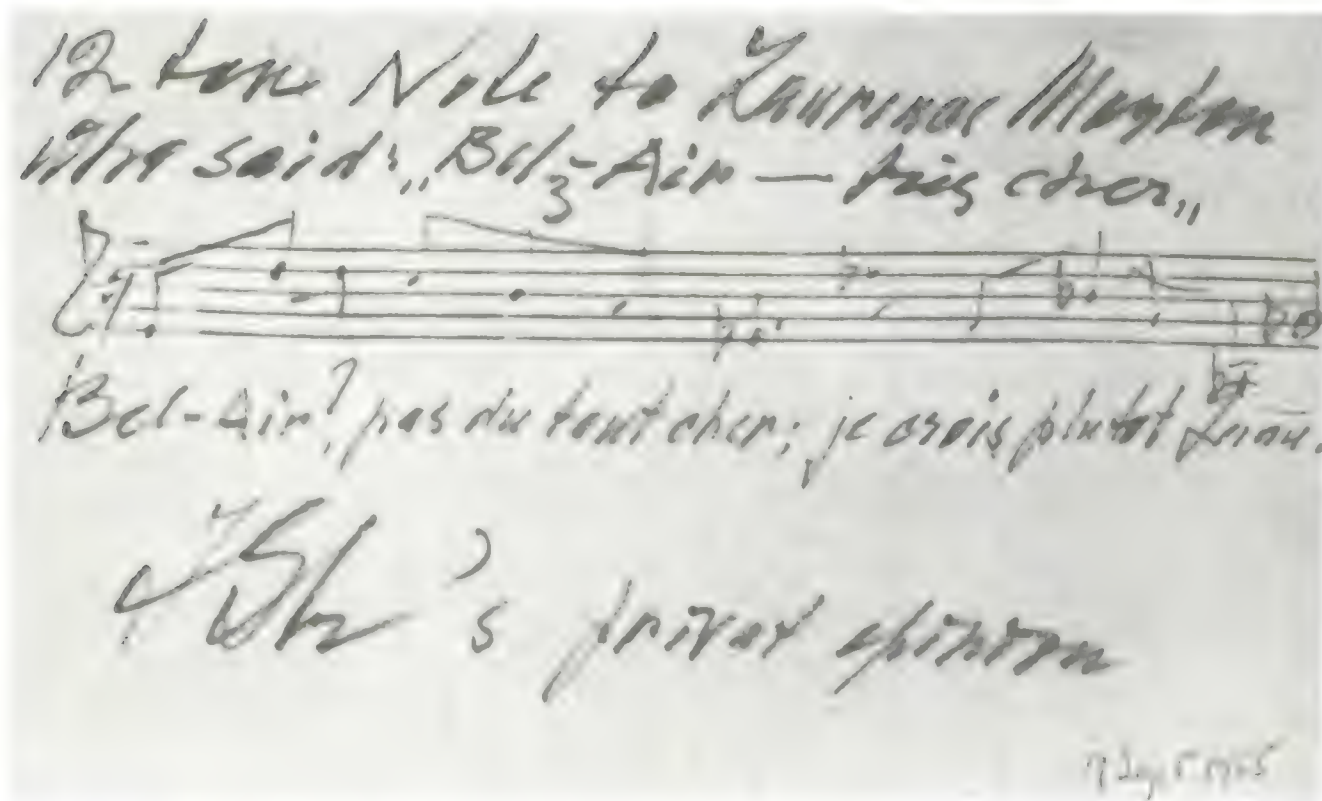 12 tone Note to Lawrence Morton
who said: „Bel-Air — très cher„
3
Bel-Air? pas du tout cher; je crois plutôt
IStr 's privat opinion
1965